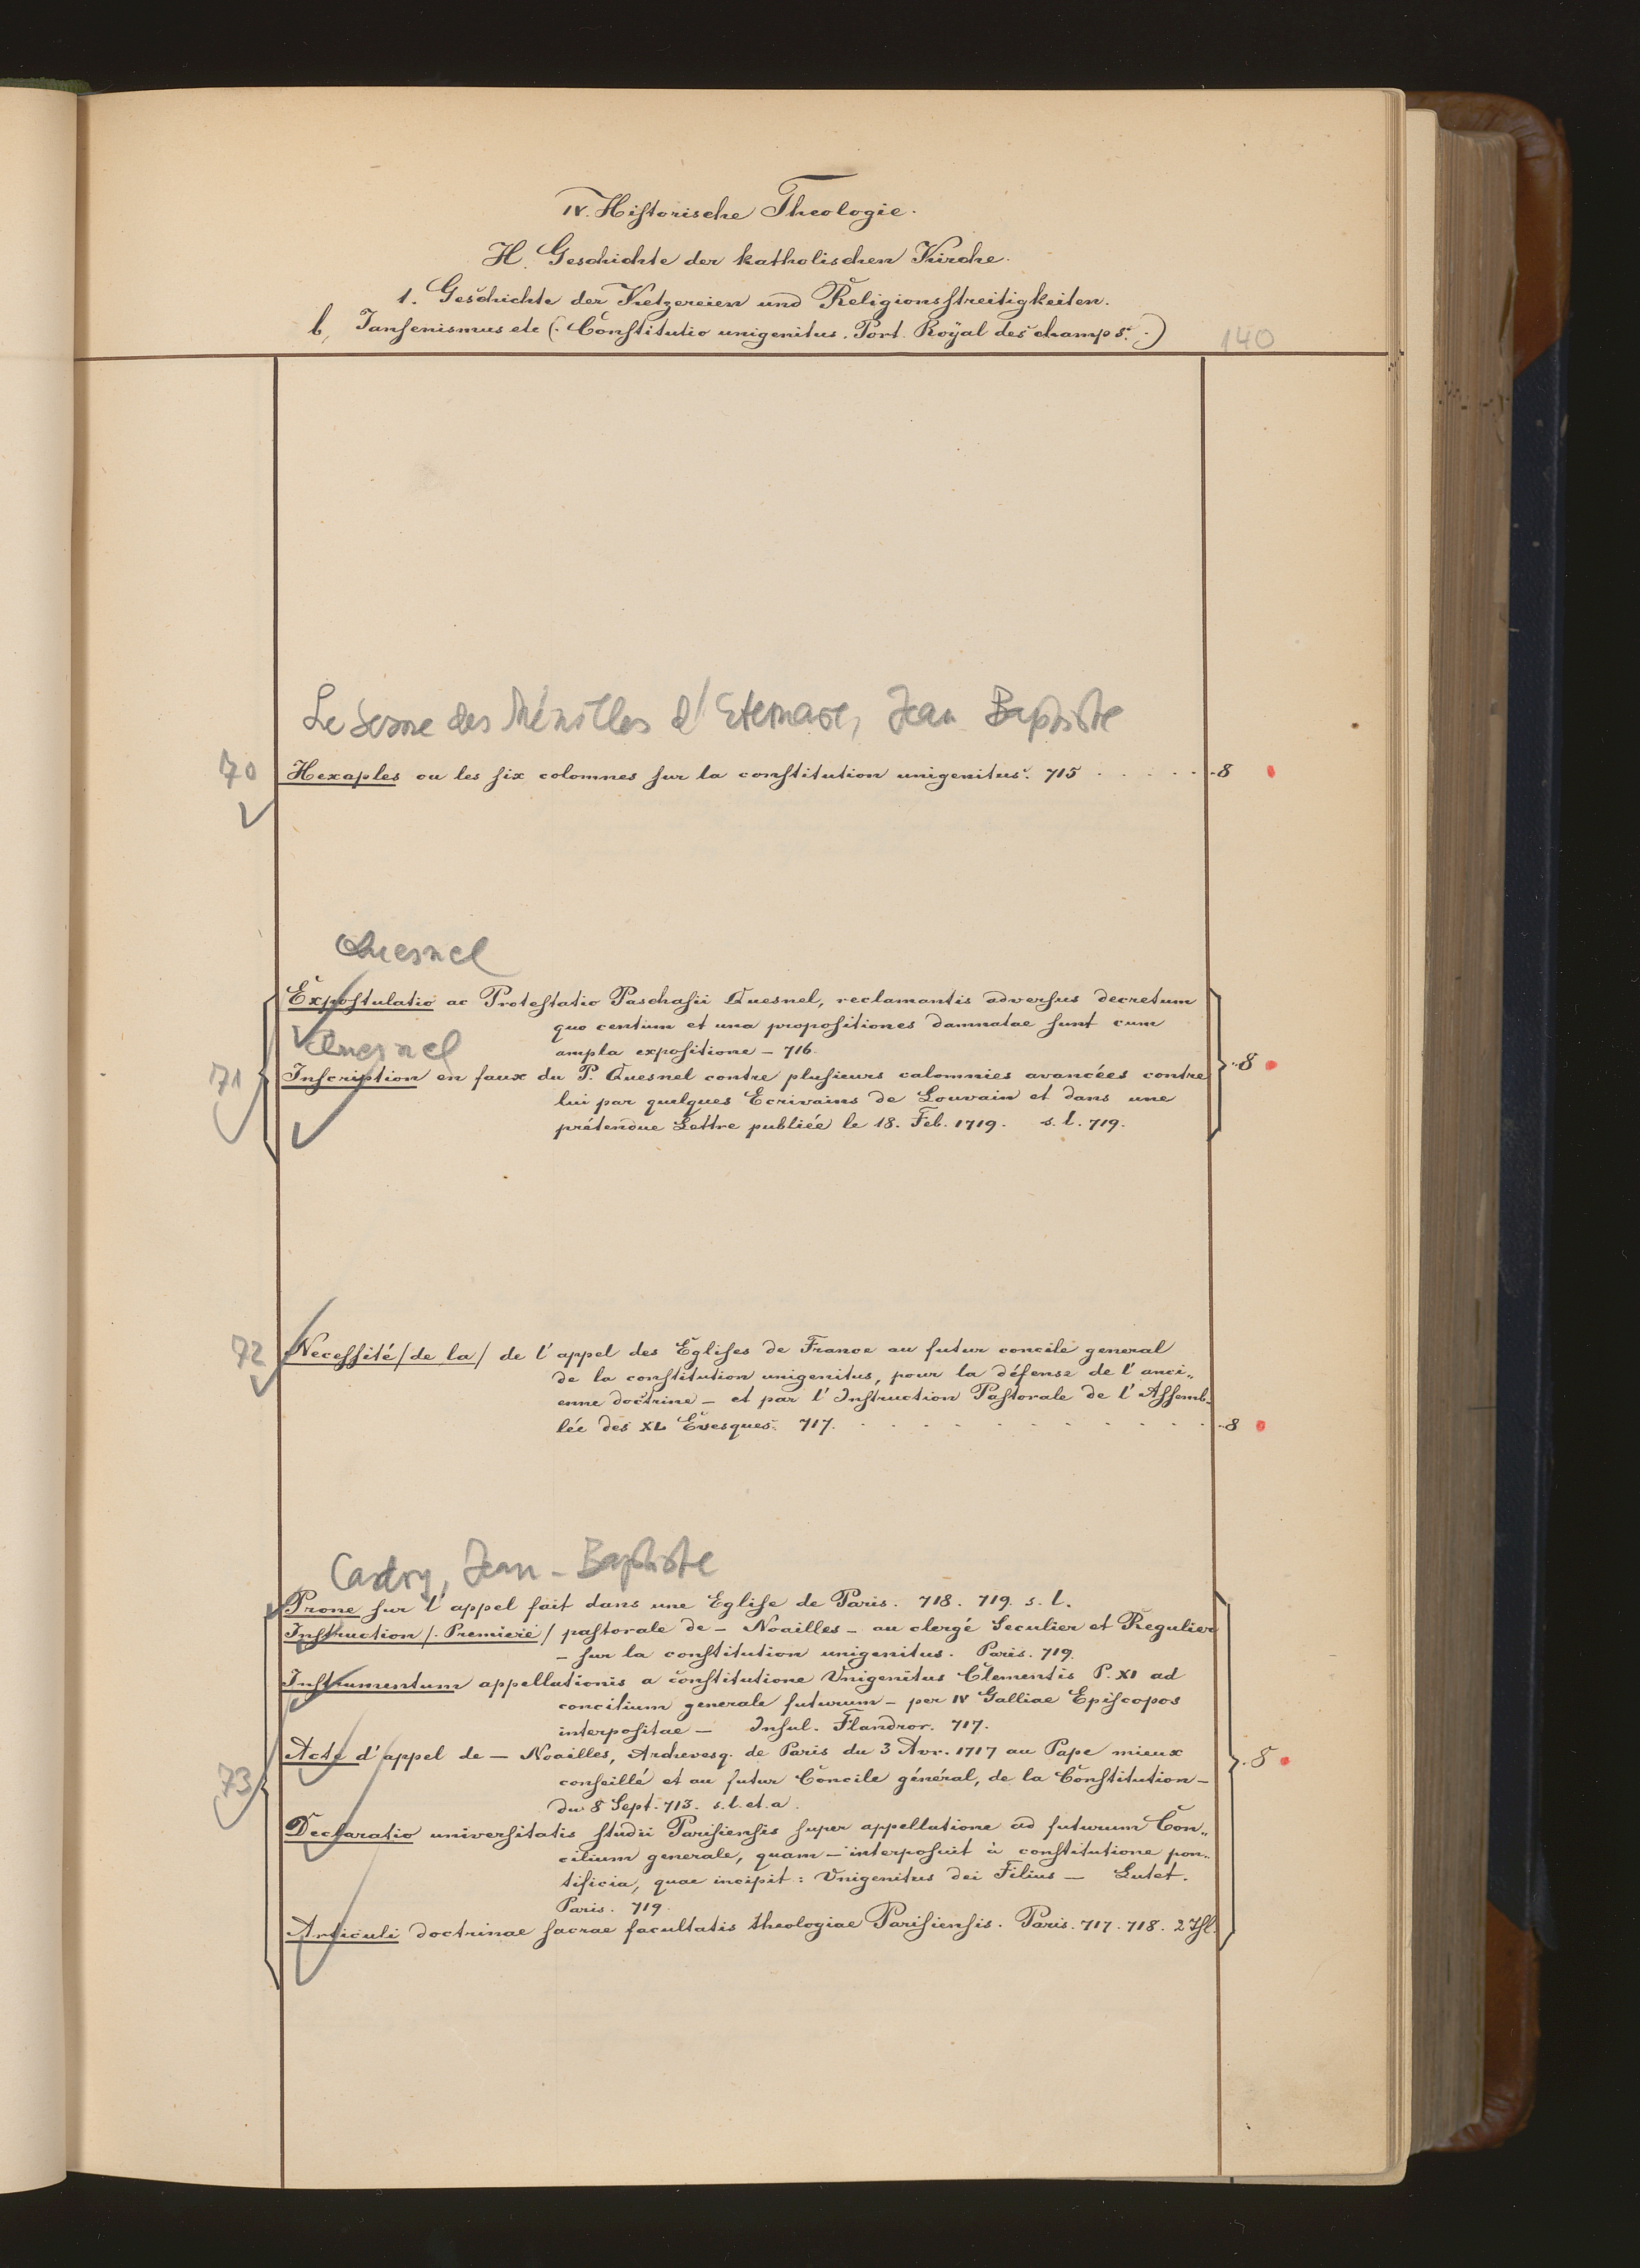 IV. Historische Theologie.
H. Geschichte der katholischen Kirche.
1. Geschichte der Ketzereien und Religionsstreitigkeiten.
b, Jansenismus etc (: Constitutio unigenitus. Port Royal des champs. :) 140
Le Sesne des Ménilles d'Etemare, Jean Baptiste
70 Hexaples ou les six colomnes sur la constitution unigenitus. 715 . . . . . . 8
Quesnel
Expostulatio ac Protestatio Paschasii Quesnel, reclamantis adversus decretum
quo centum et una propositiones damnatae sunt cum
Quesnel ampla expositione – 716.
71 Inscription en faux du P. Quesnel contre plusieurs calomnies avancées contre 8
lui par quelques Ecrivains de Louvain et dans une
prétendue Lettre publiée le 18. Feb. 1719. s. l. 719.
72 Necessité /de la/ de l'appel des Eglises de France au futur concile general
de la constitution unigenitus, pour la défense de l'anci„
enne doctrine – et par l'Instruction Pastorale de l'Assemb„
lée des XL Evesques. 717. . . . . . . . . . 8
Cadry, Jean-Baptiste
Prone sur l'appel fait dans une Eglise de Paris. 718. 719. s. l.
Instruction /. Premiere / pastorale de – Noailles – au clergé Seculier et Regulier
– sur la constitution unigenitus. Paris. 719.
Instrumentum appellationis a constitutione Unigenitus Clementis P. XI ad
concilium generale futurum – per IV Galliae Episcopos
interpositae – Insul. Flandror. 717.
Acte d'appel de – Noailles, Archevesq. de Paris du 3 Avr. 1717 au Pape mieux 8
conseillé et au futur Concile général, de la Constitution –
73 du 8 Sept. 713. s. l. et. a.
Declaratio universitatis studii Parisiensis super appellatione ad futurum Con„
cilium generale, quam – interposuit à constitutione pon„
tificia, quae incipit: Unigenitus dei Filius – Lutet.
Paris. 719.
Articuli doctrinae sacrae facultatis theologiae Parisiensis. Paris. 717. 718. 2 Thl.